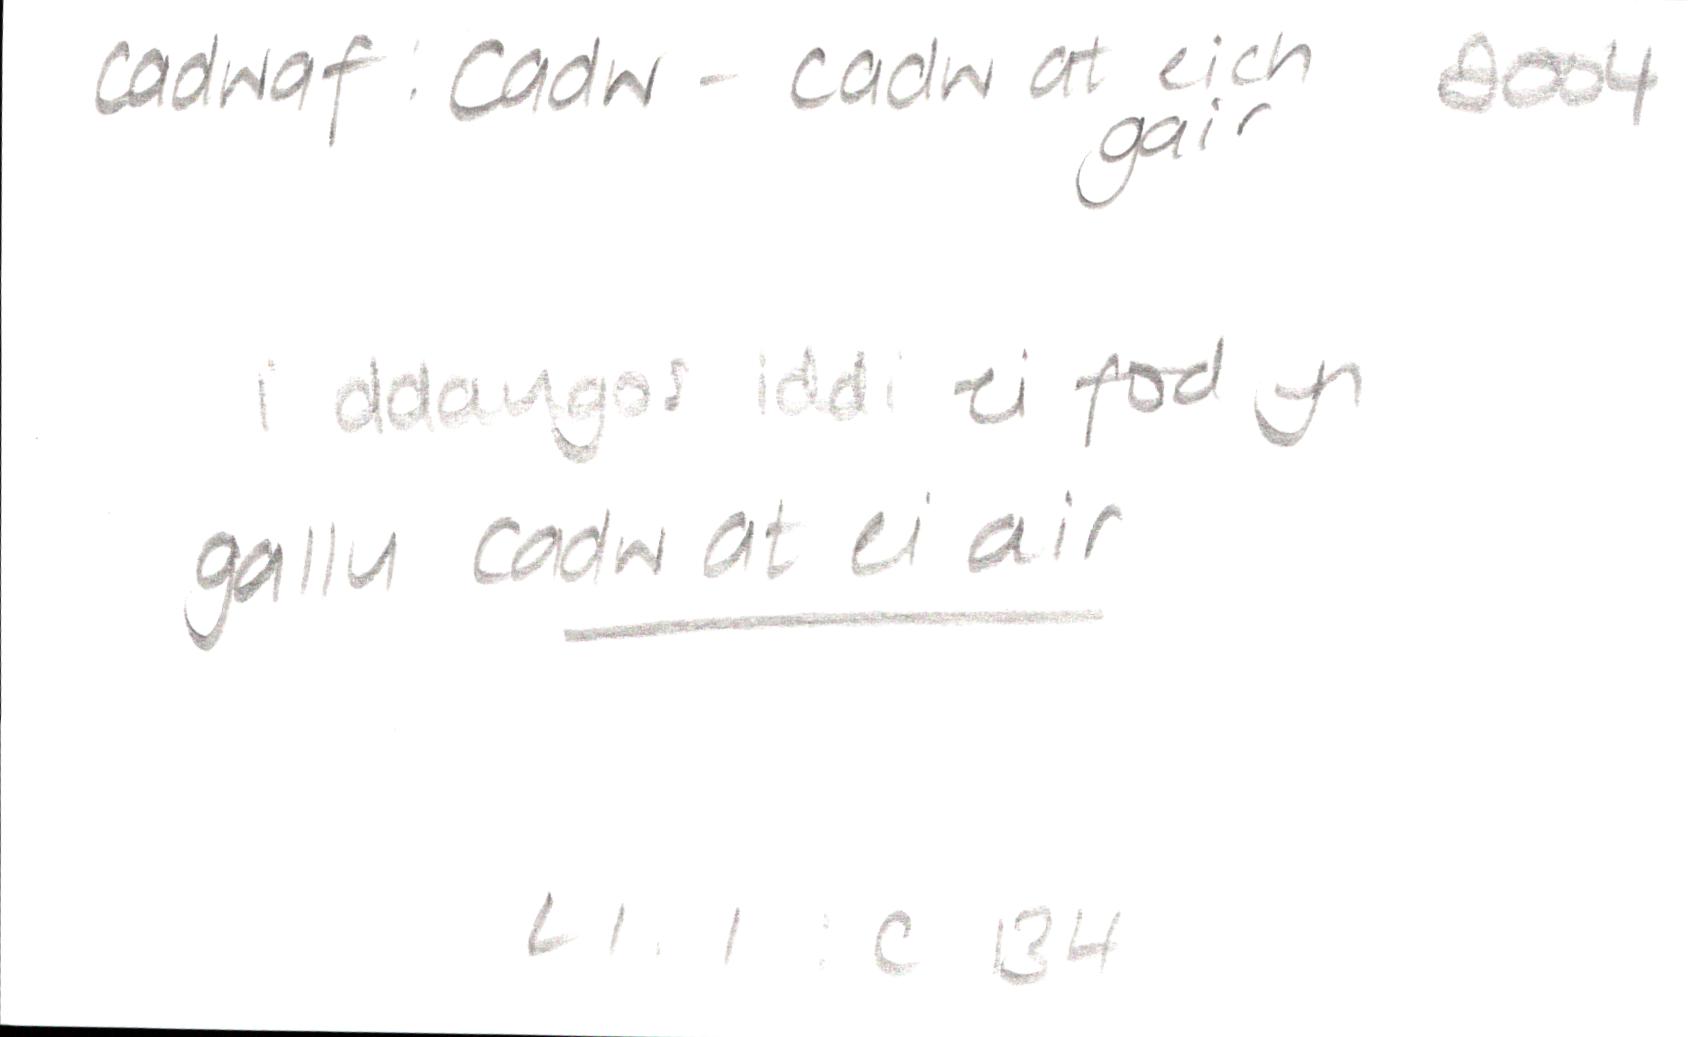 cadwaf: Cadw - cadw at eich 2004
gair
i ddangos iddi ei fod yn
gallu cadw at ei air
Ll. 1 : C 134